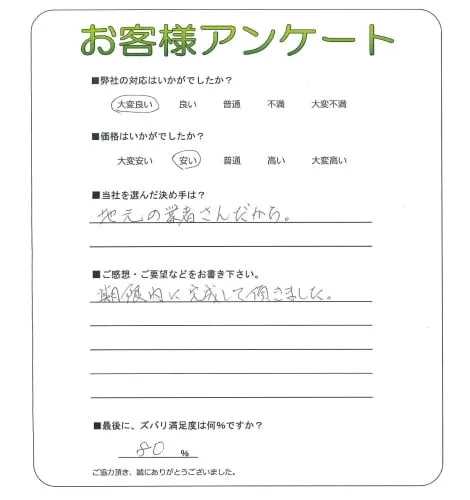 お客様アンケート
■弊社の対応はいかがでしたか?
大変良い 良い 普通 不満 大変不満
■価格はいかがでしたか?
大変安い 安い 普通 高い 大変高い
■当社を選んだ決め手は?
地元の業者さんだから。
■ご感想・ご要望などをお書き下さい。
期限内に完成して頂きました。
■最後に、ズバリ満足度は何%ですか?
80 %
ご協力頂き、誠にありがとうございました。